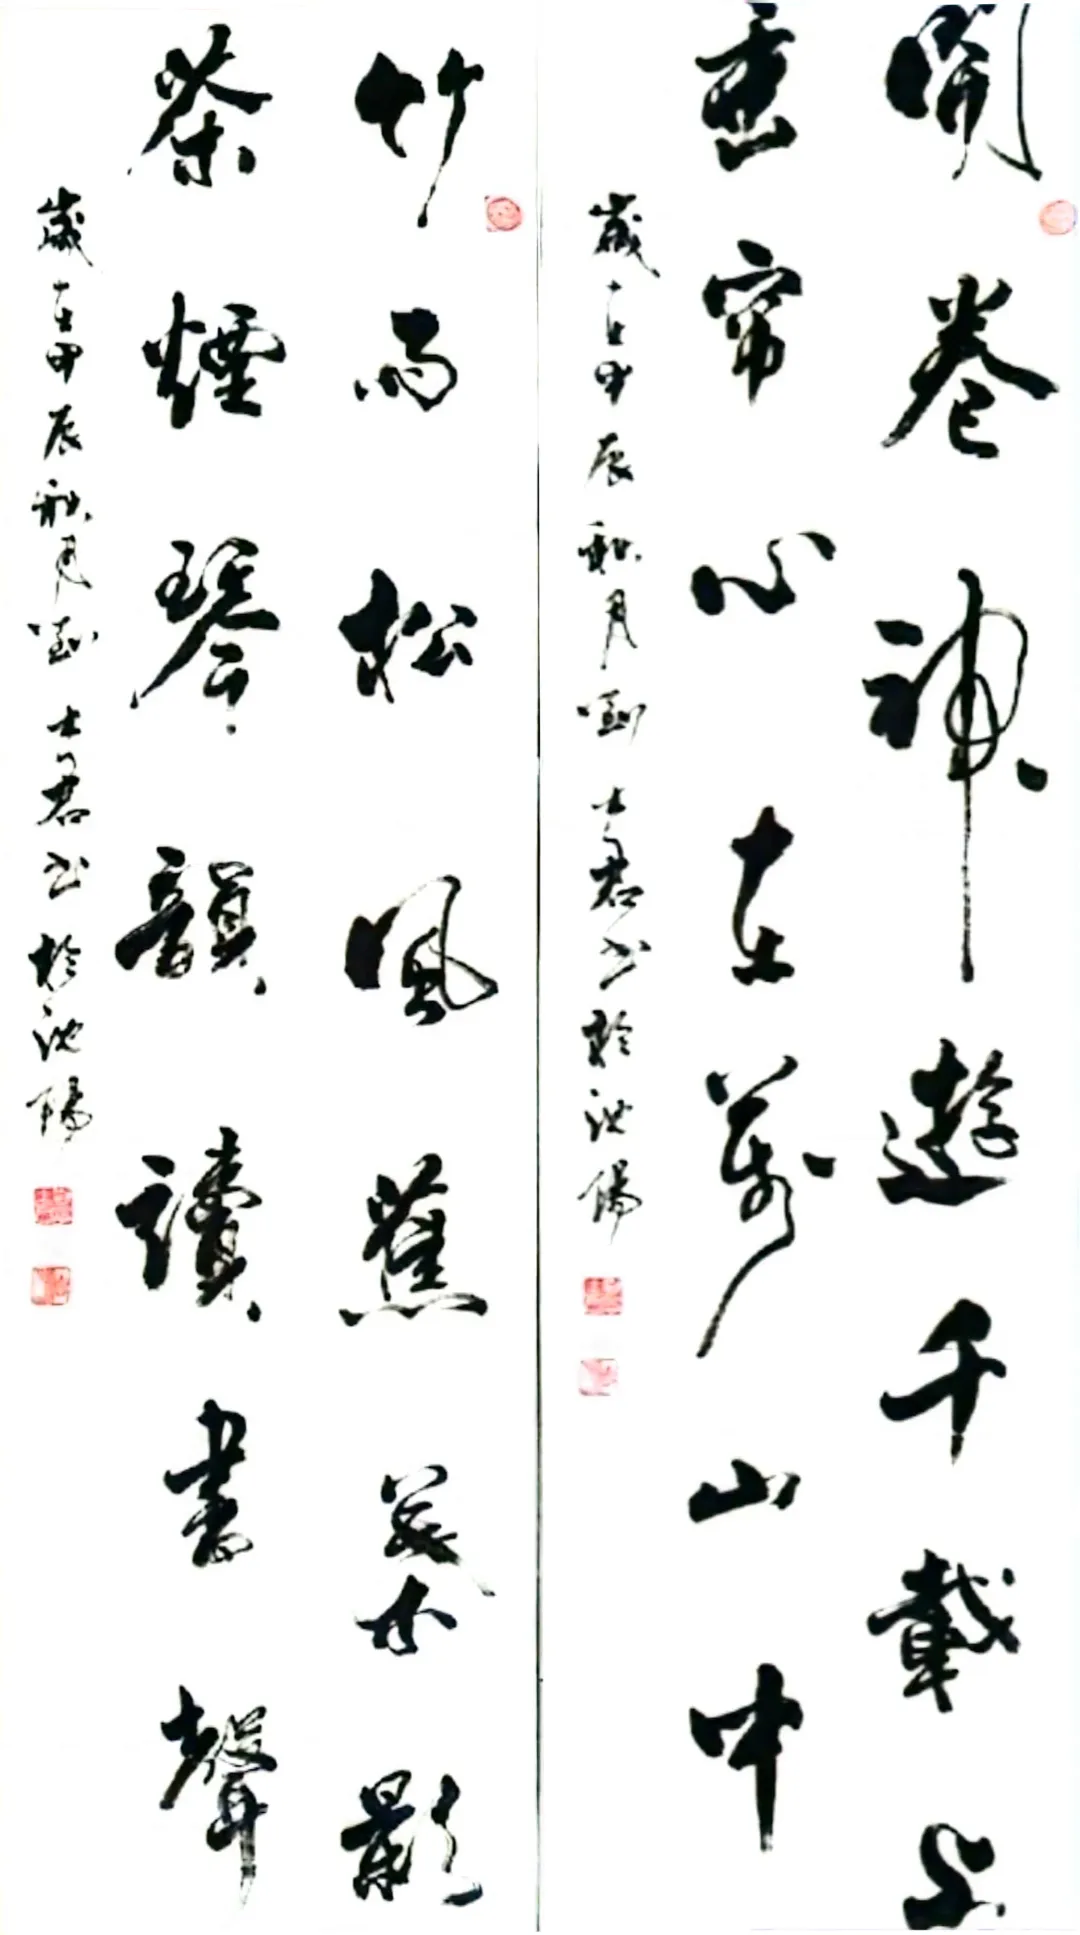 開卷神遊千載上
垂帘心在萬山中
歲在甲辰秋月劉士君书於沈陽
竹雨松風蕉葉影
茶煙琴韻讀書聲
歲在甲辰秋月劉士君书於沈陽